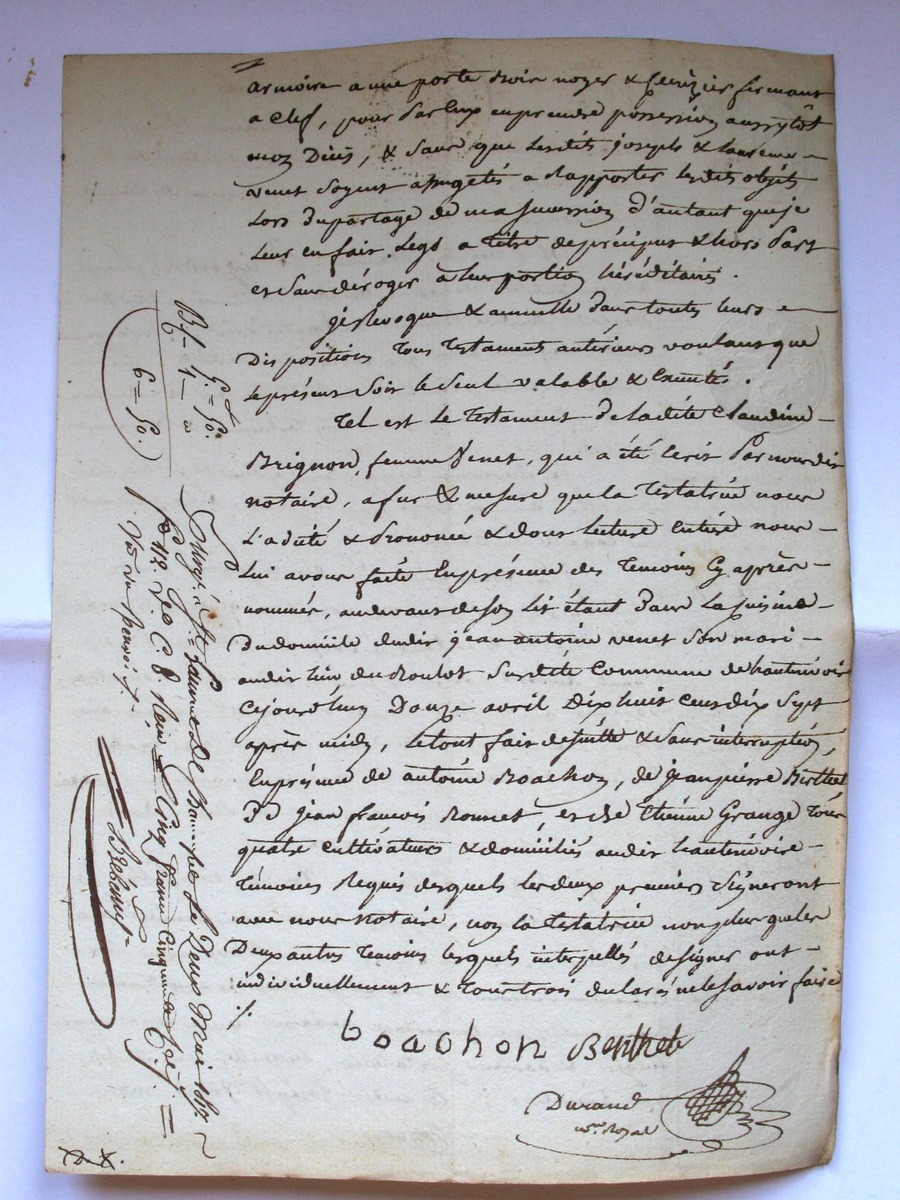 armoire a une porte bois noyer & cerizier fermant
a clef, pour par eux en prendre possession aussytôt
mon Décès, & sans que lesdits joseph & laurence
venet soyent assugetés a rapporter lesdits objets
Lors du partage de ma succession d'autant que je
leur en fait Legs a titre de préciput & hors Part
et sans déroger a leur portion héréditaire.
je Revoque & annulle dans toutes leurs
Dispositions tous testaments antérieurs voulant que
le présent soit le seul valable & Executés.
Tel est le testament de ladite Claudine
Brignon, femme Venet, qui a été Ecrit Par nous dit
notaire, a fur & mesure que la Testatrice nous
L'a dicté & prononcé & dont lecture Entière nous
Lui avons faite En présence des Temoins Cy après
nommés, au devant de son lit étant Dans La cuisine
Du domicile dudit jean antoine venet son mari
audit lieu du susdite Commune de hauterivoire
Cejourd'huy Douze avril Dix huit Cent dix Sept
après midy, le tout fait de suitte & sans interruption,
En présence de antoine Boachon, de jean pierre Berthet
De jean françois et de Etienne Grange Tous
quatre cultivateurs & domiciliés audit hauterivoire
Témoins Requis desquels les deux premiers signeront
avec nous Notaire, non la Testatrice non plus que les
Deux autres Temoins lesquels interpellés de signer ont
individuellement & tous trois déclarés ne le savoir faire
./.
boachon Berthet
Durand
Royal
5f = 50.
1 =
6 = 50.
Enregé à St Laurent De Chamousset Le Deux Mai 1817
fo 112 Vo C. 8 Reçu Cinq francs Cinquante